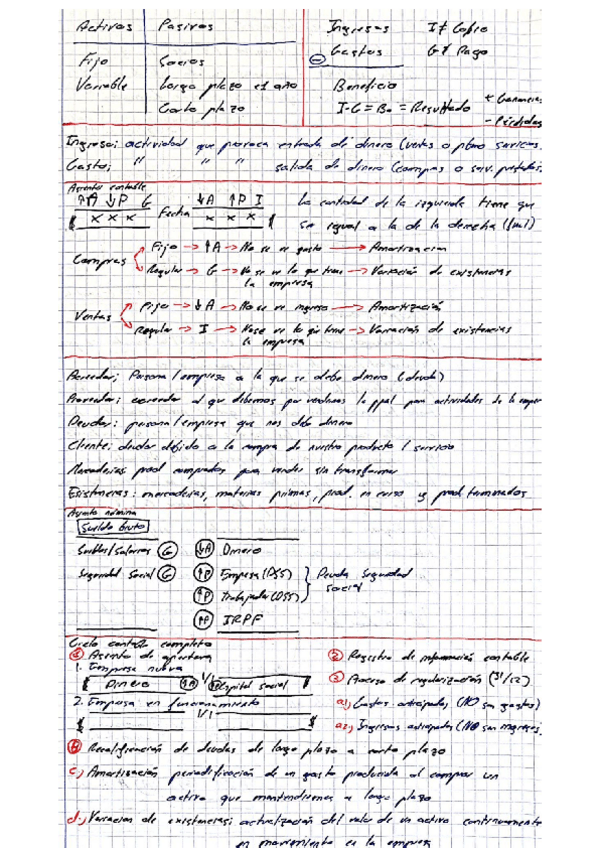 Activos | Pasivos
Fijo | Socios
Variable | Largo plazo +1 año
Corto plazo
Ingresos I ≠ Cobro
- Gastos G ≠ Pago
Beneficio
I-G = Bo = Resultado + Ganancias
- Pérdidas
Ingreso: actividad que provoca entrada de dinero (ventas o servicios.
Gasto: " " " salida de dinero (compras o serv. prestados.
Asiento contable
↑A ↓P G Fecha ↓A ↑P I
x x x x x x
La cantidad de la izquierda tiene que
ser igual a la de la derecha
Compras → Fijo → ↑A → No se ve gasto → Amortización
→ Regular → G → Vase ve lo que tiene → Variación de existencias
la empresa
Ventas → Fijo → ↓A → No se ve ingreso → Amortización
→ Regular → I → Vase ve lo que tiene → Variación de existencias
la empresa
Acreedor: Persona/empresa a la que se debe dinero (deuda)
Proveedor: acreedor al que debemos por vendernos lo ppal para actividades de la
Deudor: persona/empresa que nos debe dinero
Cliente: deudor debido a la compra de nuestro producto / servicio
Mercaderías: prod comprados para vender sin transformar
Existencias: mercaderías, materias primas, prod. en curso y prod terminados
Asiento nómina
Sueldo bruto
Sueldos/Salarios G ↓A Dinero
Seguridad Social G ↑P Empresa (DSS)
↑P Trabajador (DSS)
Deuda Seguridad
Social
↑P IRPF
Ciclo contable completo
① Asiento de apertura
1. Empresa nueva
Dinero ↑A 1/1 Capital social
2. Empresa en funcionamiento
1/1
② Registro de información contable
③ Proceso de regularización (31/12)
a1) Gastos anticipados (NO son gastos)
a2) Ingresos anticipados (NO son ingresos)
b) Reclasificación de deudas de largo plazo a corto plazo
c) Amortización periodificación de un gasto producido al comprar un
activo que mantendremos a largo plazo
d) Variación de existencias: actualización del valor de un activo continuamente
en movimiento en la empresa